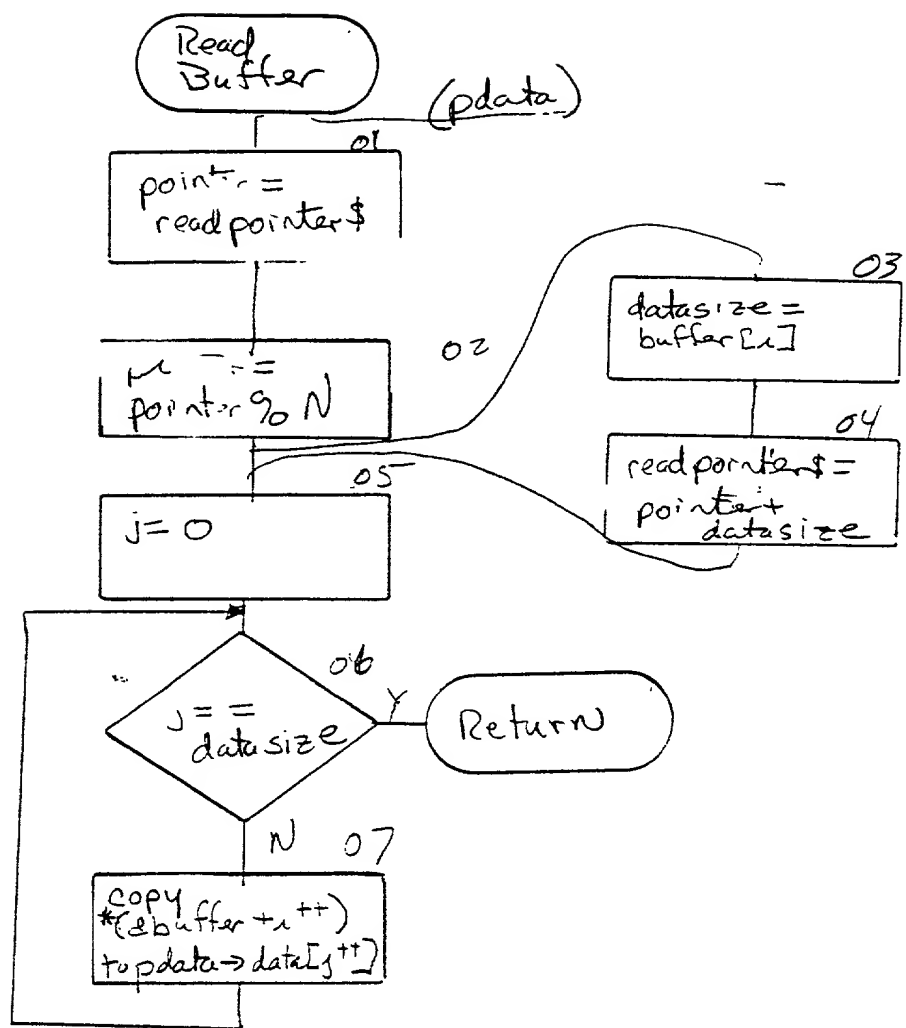 Read
Buffer
(pdata)
01
=
readpointer$
02
=
pointer % N
03
datasize =
buffer[i]
04
readpointer$ =
pointer +
datasize
05
j = 0
06
j = =
datasize
Y
Return
N
07
copy
*(&buffer + i++)
to pdata→data[j++]